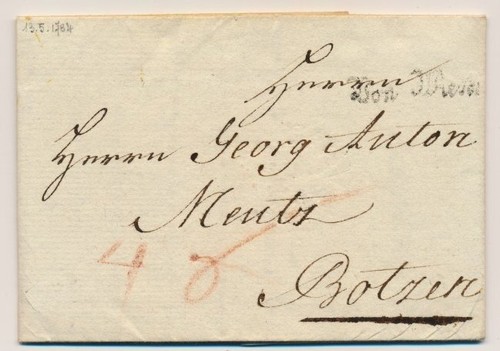 13.5.1784
Herrn
Von Wien
Herrn Georg Anton
Mentz
4 8
Botzen